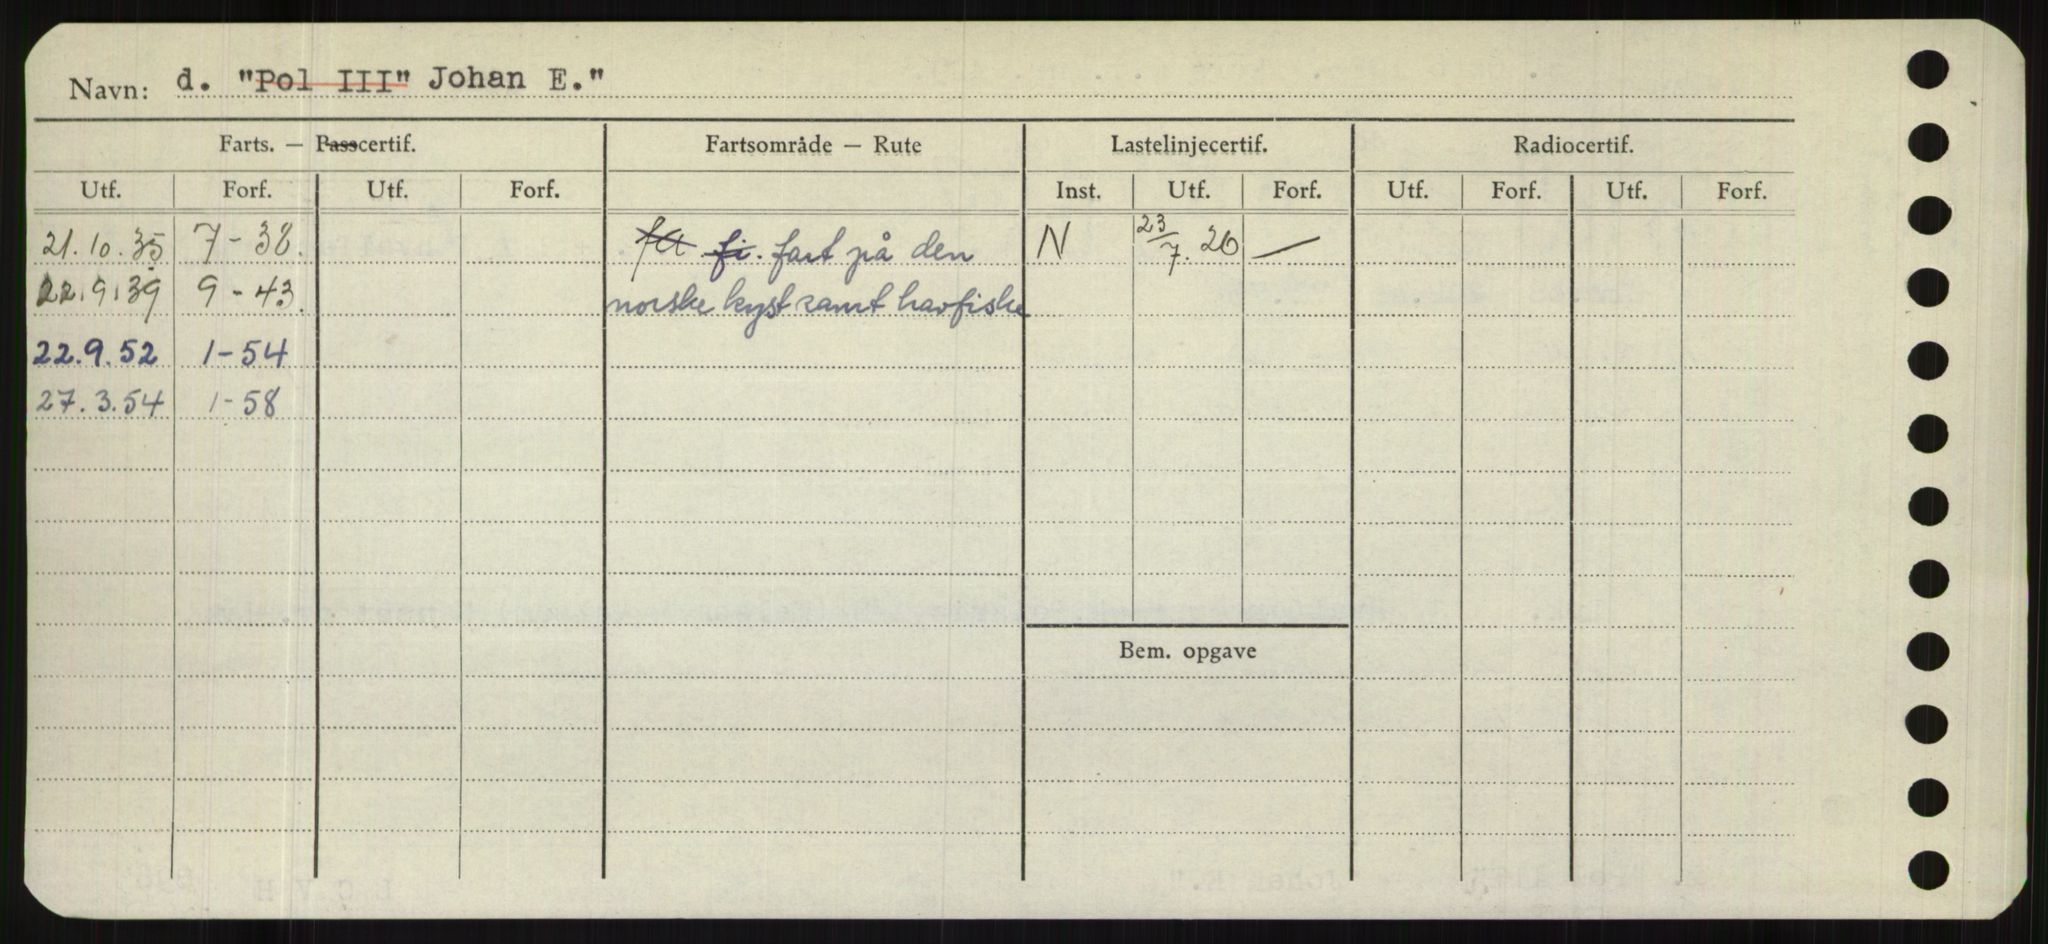 Navn: d. "Pol III" Johan E."
Farts. — Passcertif. Fartsområde — Rute Lastelinjecertif. Radiocertif.
Utf. Forf. Utf. Forf. Inst. Utf. Forf. Utf. Forf. Utf. Forf.
21.10.35 7-38. fi. fart på den N 23/7.26 —
22.9.39 9-43. norske kyst samt havfiske
22.9.52 1-54
27.3.54 1-58
Bem. opgave